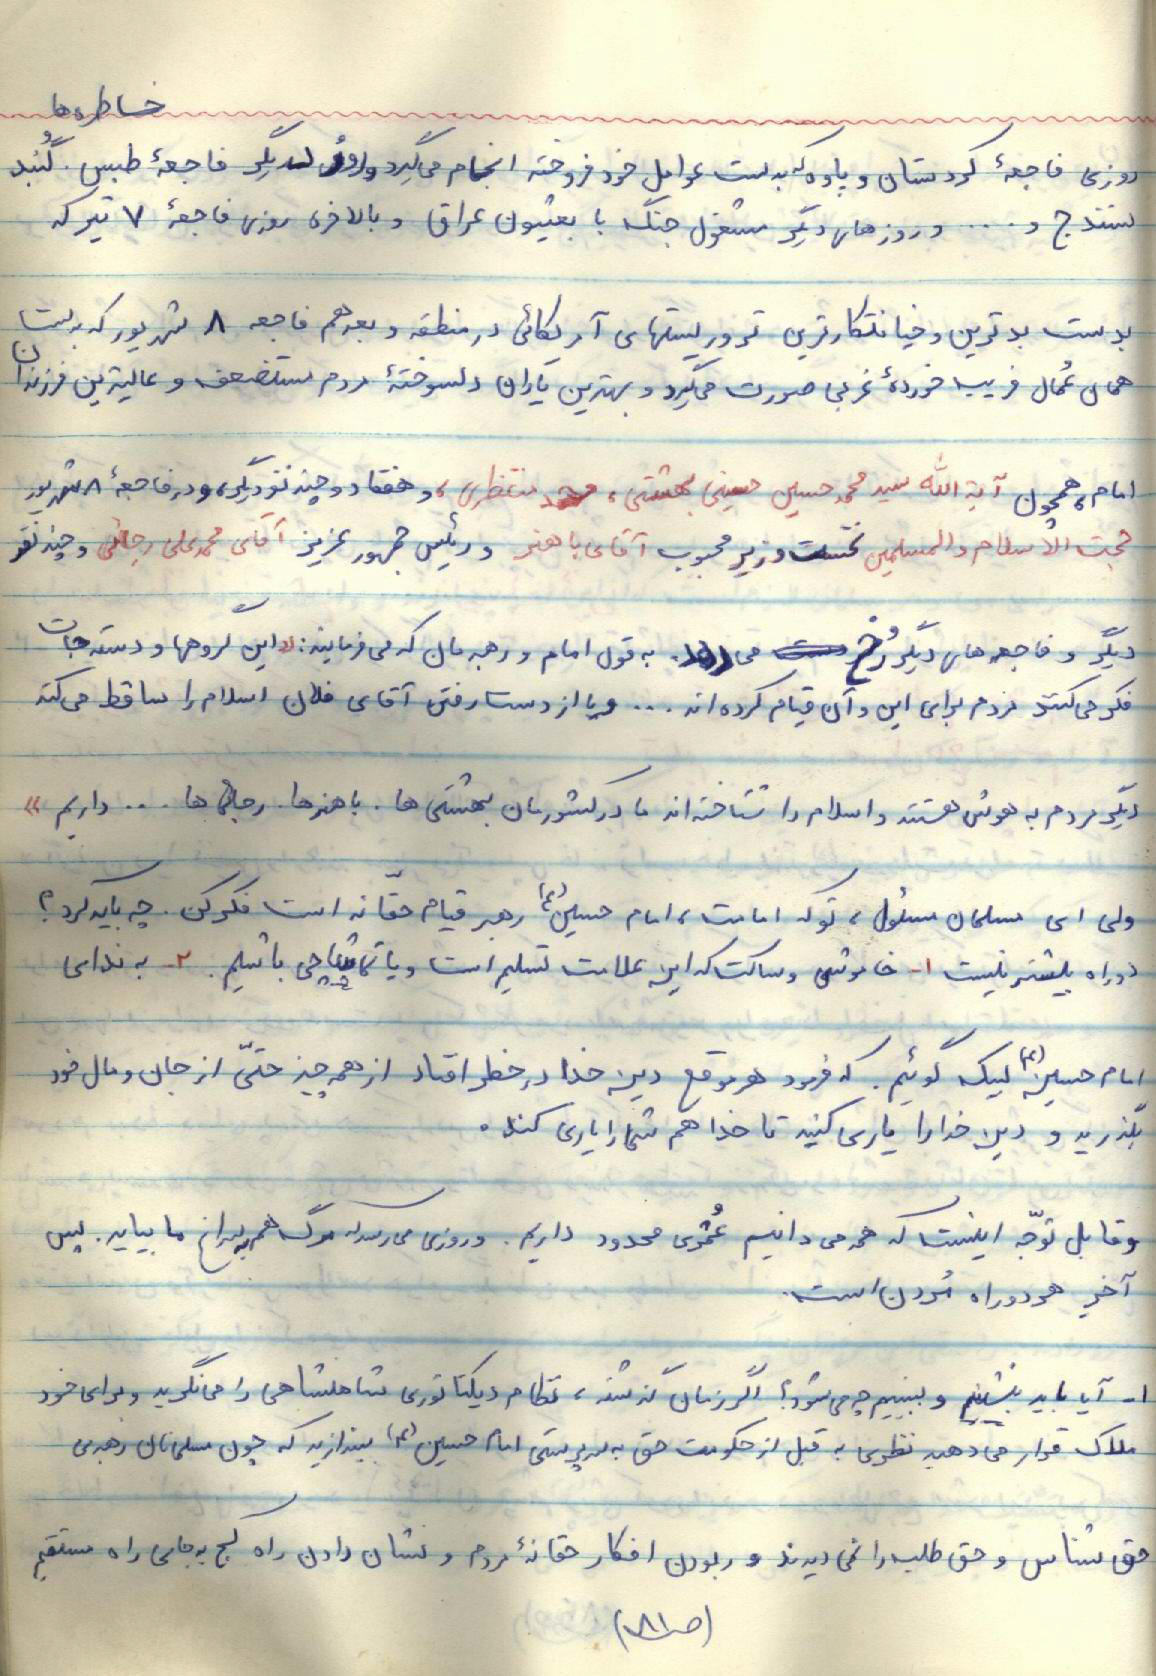 خاطره‌ها
روزی فاجعهٔ کردستان و پاوه که بدست عوامل خود فروخته انجام می‌گیرد و روز دیگر فاجعهٔ طبس. گُنبد
سنندج و .... و روزهای دیگر مشغول جنگ با بعثیون عراق و بالاخره روزی فاجعهٔ ۷ تیر که
بدست بدترین و خیانتکارترین تروریستهای آمریکائی در منطقه و بعد هم فاجعه ۸ شهریور که بدست
همان عُمال فریب خوردهٔ غربی صورت می‌گیرد و بهترین یاران دلسوختهٔ مردم مستضعف و عالیترین فرزندان
امام، همچون آیة الله سید محمد حسین حسینی بهشتی، محمد منتظری، و هفتاد و چند نفر دیگر، و در فاجعهٔ ۸ شهریور
حجت الاسلام و المسلمین نخست وزیر محبوب آقای باهنر و رئیس جمهور عزیز آقای محمد علی رجائی و چند نفر
دیگر و فاجعه‌های دیگر رُخ می‌داد. به قول امام و رهبرمان که می‌فرمایند: «این گروهها و دسته‌جات
فکر می‌کنند مردم برای این و آن قیام کرده‌اند ... و یا از دست رفتن آقای فلان اسلام را ساقط می‌کند
دیگر مردم به هوش هستند و اسلام را شناخته‌اند ما در کشورمان بهشتی‌ها. باهنرها. رجائی‌ها ... داریم »
ولی ای مسلمان مسئول، تو که امامت، امام حسین (ع) رهبر قیام حقّانه است فکر کن. چه باید کرد؟
دو راه بیشتر نیست ۱- خاموشی و ساکت که این علامت تسلیم است و یا تماشاچی باشیم. ۲- به ندای
امام حسین (ع) لبیک گوئیم. که فرمود هر موقع دین خدا در خطر افتاد از همه چیز حتّی از جان و مال خود
بگذرید و دین خدا را یاری کنید تا خدا هم شما را یاری کند.
و قابل توجّه اینست که همه می‌دانیم عُمْری محدود داریم. و روزی می‌رسد که مرگ هم بسراغ ما بیاید. پس
آخر هر دو راه مُردن است.
۱- آیا باید بنشینیم و ببینیم چه می‌شود؟ اگر زمان گذشته، نظام دیکتاتوری شاهنشاهی را می‌نگرید و برای خود
ملاک قرار می‌دهید نظری به قبل از حکومت حق به سرپرستی امام حسین (ع) بیندازید که چون مسلمانان رهبری
حق شناس و حق طلب را نمی‌دیدند و ربودن افکار حقانهٔ مردم و نشان دادن راه کج به جای راه مستقیم
(ص ۸۱)